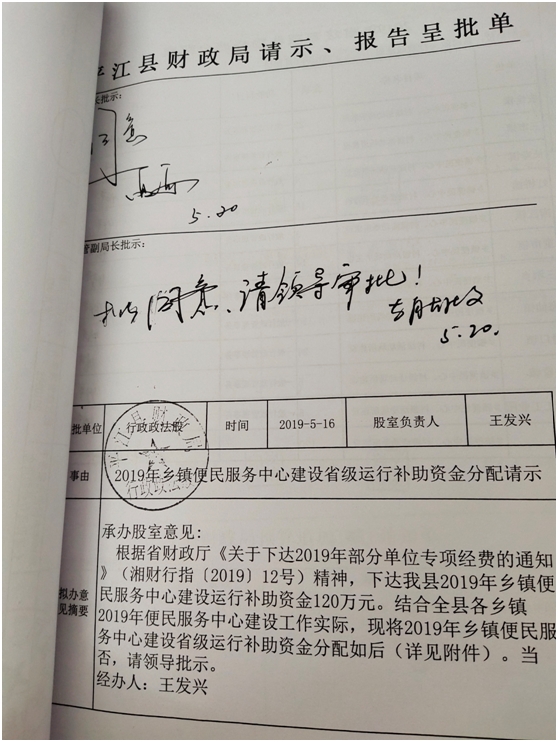 江县财政局请示、报告呈批单
长批示:
同意
5.20
管副局长批示:
拟同意、请领导审批!
5.20.
批单位 行政政法股 时间 2019-5-16 股室负责人 王发兴
事由 2019年乡镇便民服务中心建设省级运行补助资金分配请示
拟办意见摘要
承办股室意见:
根据省财政厅《关于下达2019年部分单位专项经费的通知
》(湘财行指〔2019〕12号)精神,下达我县2019年乡镇便
民服务中心建设运行补助资金120万元。结合全县各乡镇
2019年便民服务中心建设工作实际,现将2019年乡镇便民服
务中心建设省级运行补助资金分配如后(详见附件)。当
否,请领导批示。
经办人:王发兴